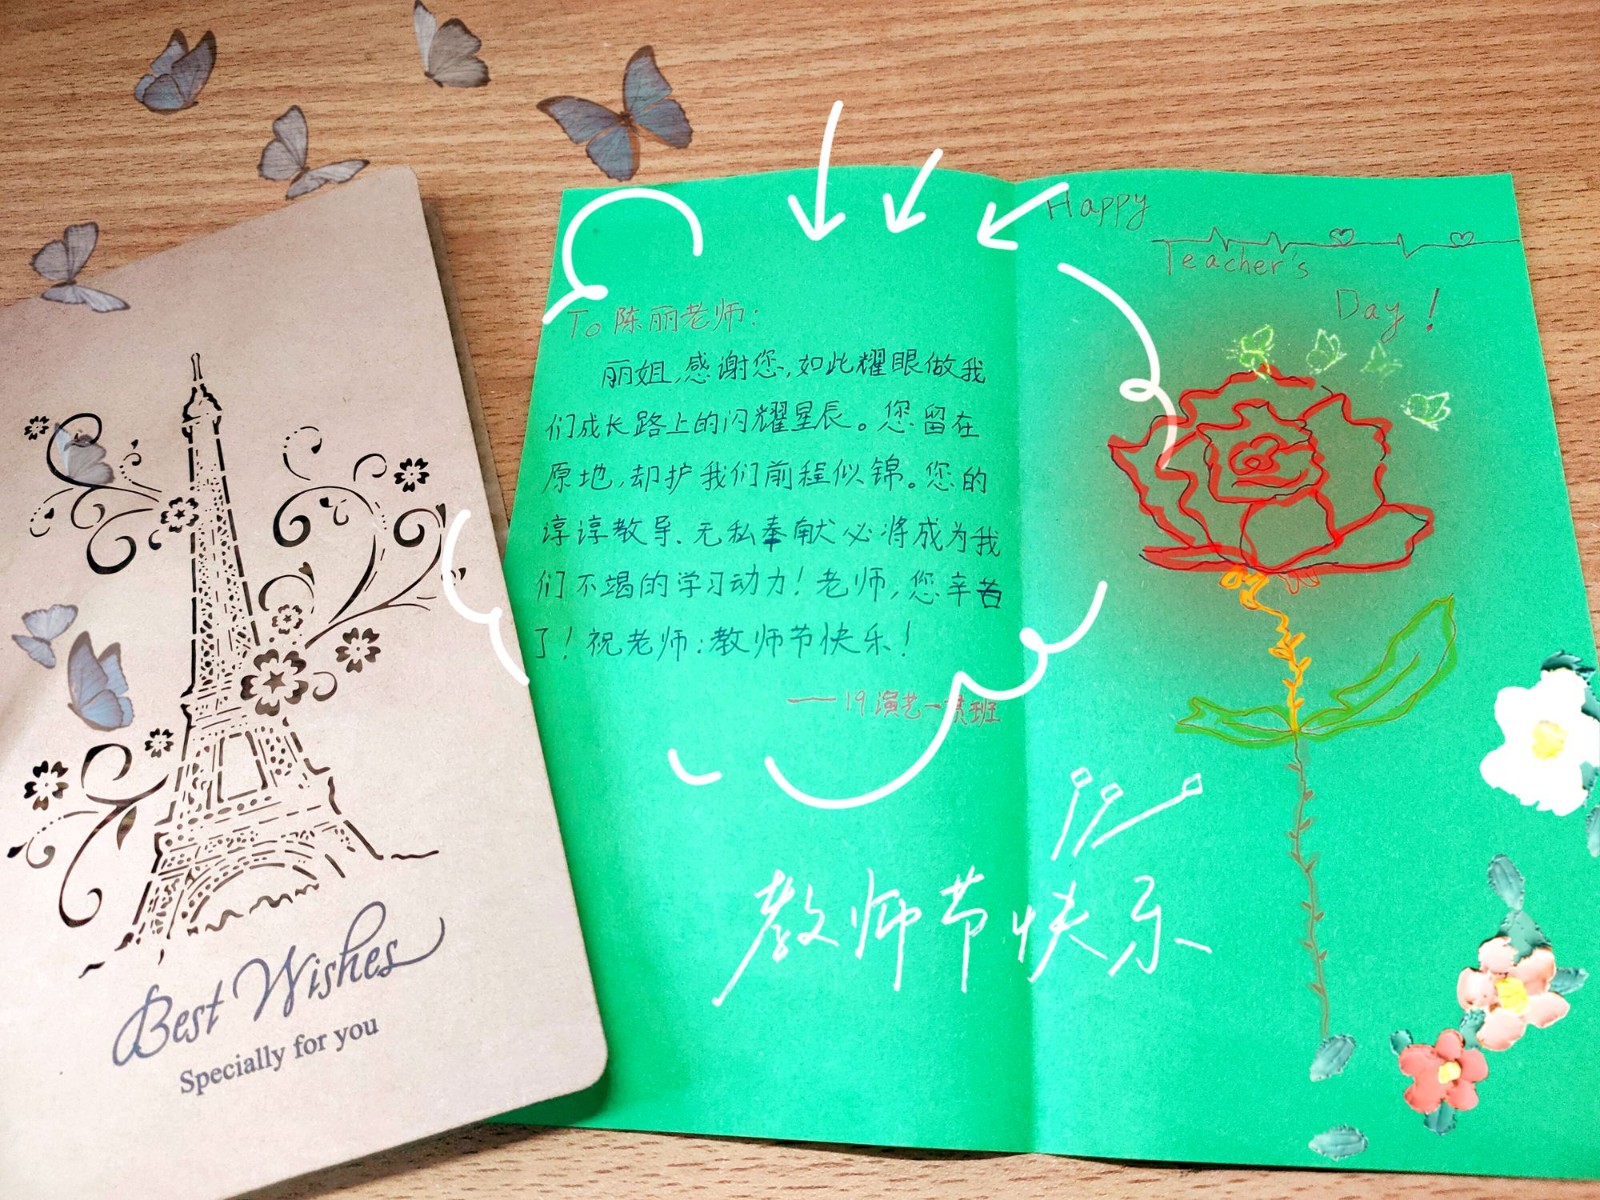 Best Wishes
Specially for you
To 陈丽老师:
丽姐,感谢您,如此耀眼做我
们成长路上的闪耀星辰。您留在
原地,却护我们前程似锦。您的
谆谆教导、无私奉献必将成为我
们不竭的学习动力!老师,您辛苦
了!祝老师:教师节快乐!
——19演艺一班
Happy
Teacher's
Day!
教师节快乐